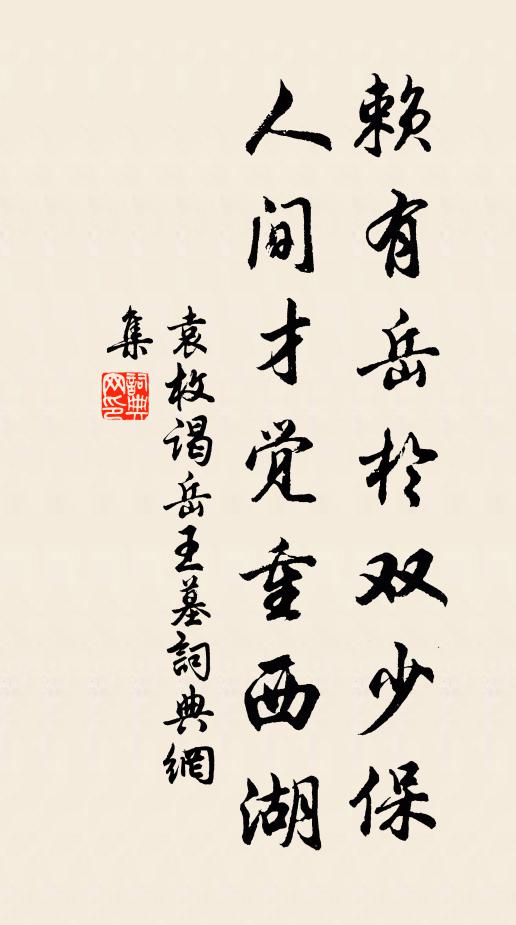 赖有岳於双少保
人间才觉重西湖
袁枚谒岳王墓詞典網
集
詞典
网印